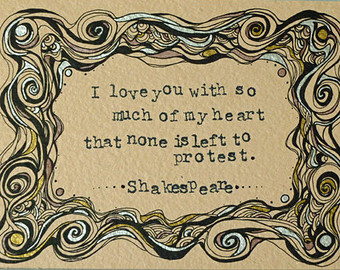 I love you with so
much of my heart
that none is left to
protest.
.....Shakespeare.....